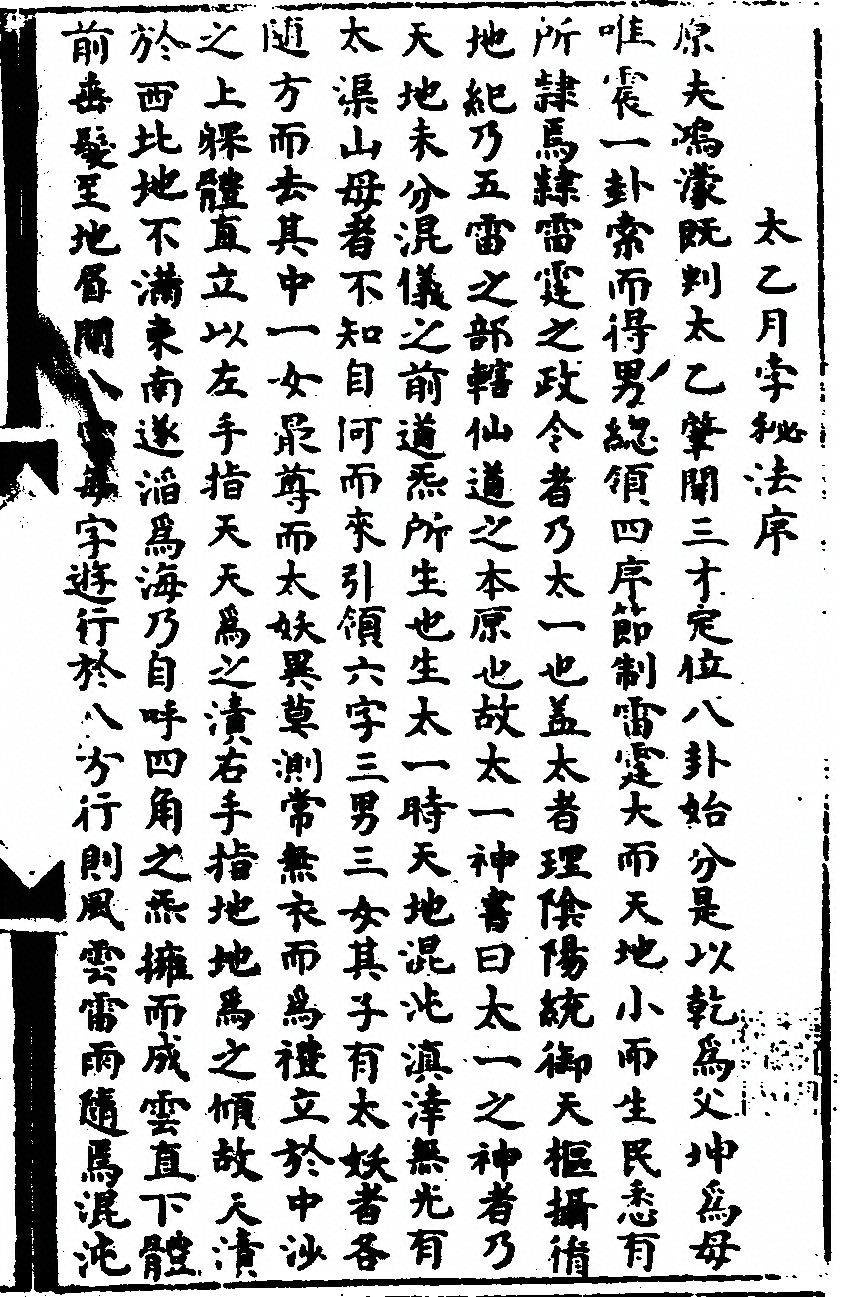 太乙月孛秘法序
原夫鴻濛既判太乙肇開三才定位八卦始分是以乾爲父坤爲母
唯震一卦索而得男總領四序節制雷霆大而天地小而生民悉有
所隸焉隸雷霆之政令者乃太一也盖太者理陰陽統御天樞攝
地紀乃五雷之部轄仙道之本原也故太一神書曰太一之神者乃
天地未分混儀之前道炁所生也生太一時天地混沌溟涬無光有
太渠山母者不知自何而來引領六字三男三女其子有太妖者各
隨方而去其中一女最尊而太妖異莫測常無衣而爲禮立於中沙
之上躶體直立以左手指天天爲之潰右手指地地爲之傾故天潰
於西北地不滿東南遂滔爲海乃自呼四角之炁擁而成雲直下體
前垂髮至地眉間八字每字遊行於八方行則風雲雷雨隨焉混沌